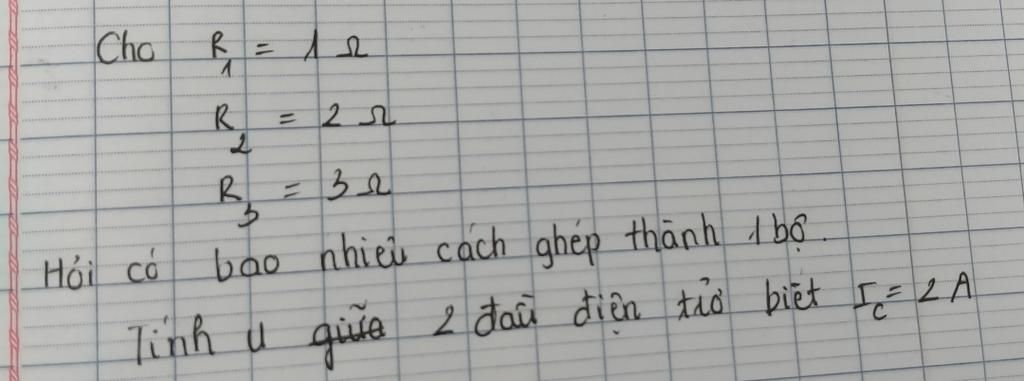 Cho R₁ = 1 Ω
R₂ = 2 Ω
R₃ = 3 Ω
Hỏi có bao nhiêu cách ghép thành 1 bộ.
Tính U giữa 2 đầu điện trở biết I_C = 2 A